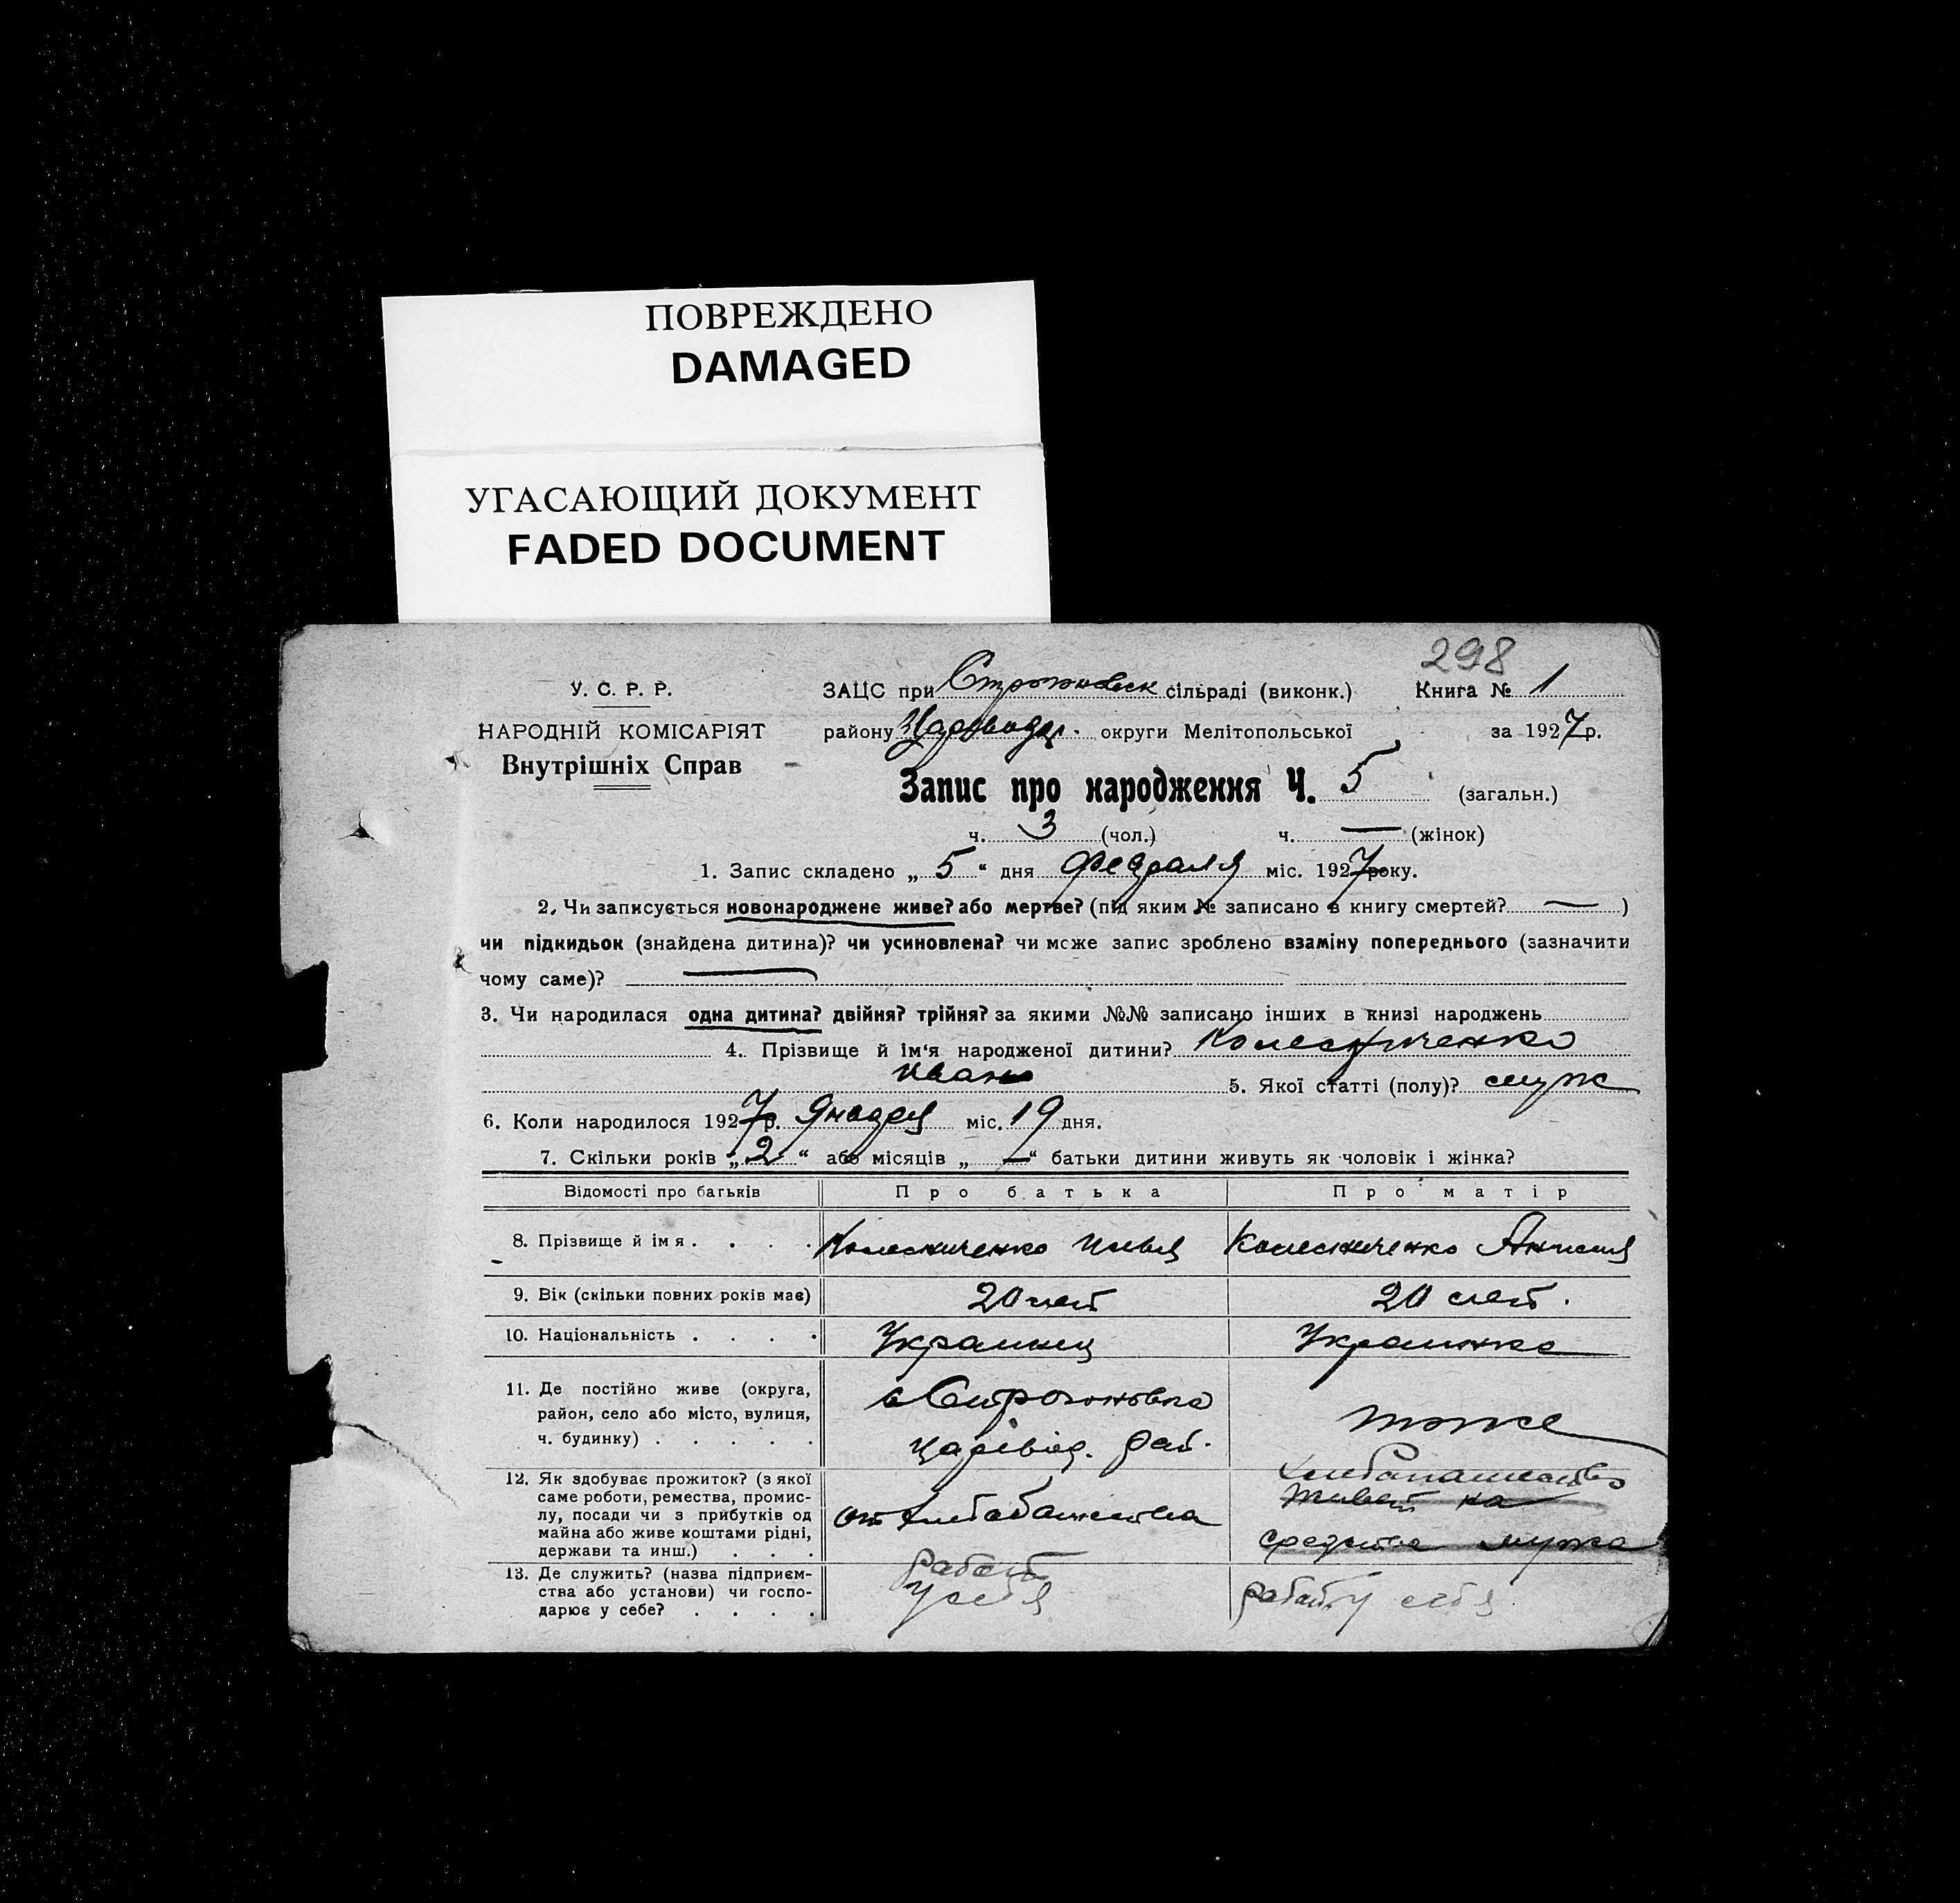 ПОВРЕЖДЕНО
DAMAGED
УГАСАЮЩИЙ ДОКУМЕНТ
FADED DOCUMENT
298
У. С. Р. Р.
НАРОДНІЙ КОМІСАРІЯТ
Внутрішніх Справ
ЗАЦС при сільраді (виконк.) Книга № 1
району округи Мелітопольської за 1927 р.
Запис про народження Ч. 5 (загальн.)
ч. 3 (чол.) ч. — (жінок)
1. Запис складено „ 5 “ дня февраля міс. 1927 року.
2. Чи записується новонароджене живе? або мертве? (під яким № записано в книгу смертей? — )
чи підкидьок (знайдена дитина)? чи усиновлена? чи може запис зроблено взаміну попереднього (зазначити
чому саме)? —
3. Чи народилася одна дитина? двійня? трійня? за якими №№ записано інших в книзі народжень
4. Прізвище й ім‘я народженої дитини? Колесниченко
Иван 5. Якої статті (полу)? муж
6. Коли народилося 1927 р. января міс. 19 дня.
7. Скільки років „ 2 “ або місяців „ — “ батьки дитини живуть як чоловік і жінка?
Відомості про батьків Про батька Про матір
8. Прізвище й імя . . . . Колесниченко Илья Колесниченко Анисия
9. Вік (скільки повних років має) 20 лет 20 лет.
10. Національність . . . . Украинец Украинка
11. Де постійно живе (округа,
район, село або місто, вулиця,
ч. будинку) . . . . .
с Строгоновка
Царівод. рай.
тоже
12. Як здобуває прожиток? (з якої
саме роботи, ремества, промис-
лу, посади чи з прибутків од
майна або живе коштами рідні,
держави та инш.) . . .
от
живет на
средства мужа
13. Де служить? (назва підприєм-
ства або установи) чи госпо-
дарює у себе? . . . .
работ
у себя
работ. у себя